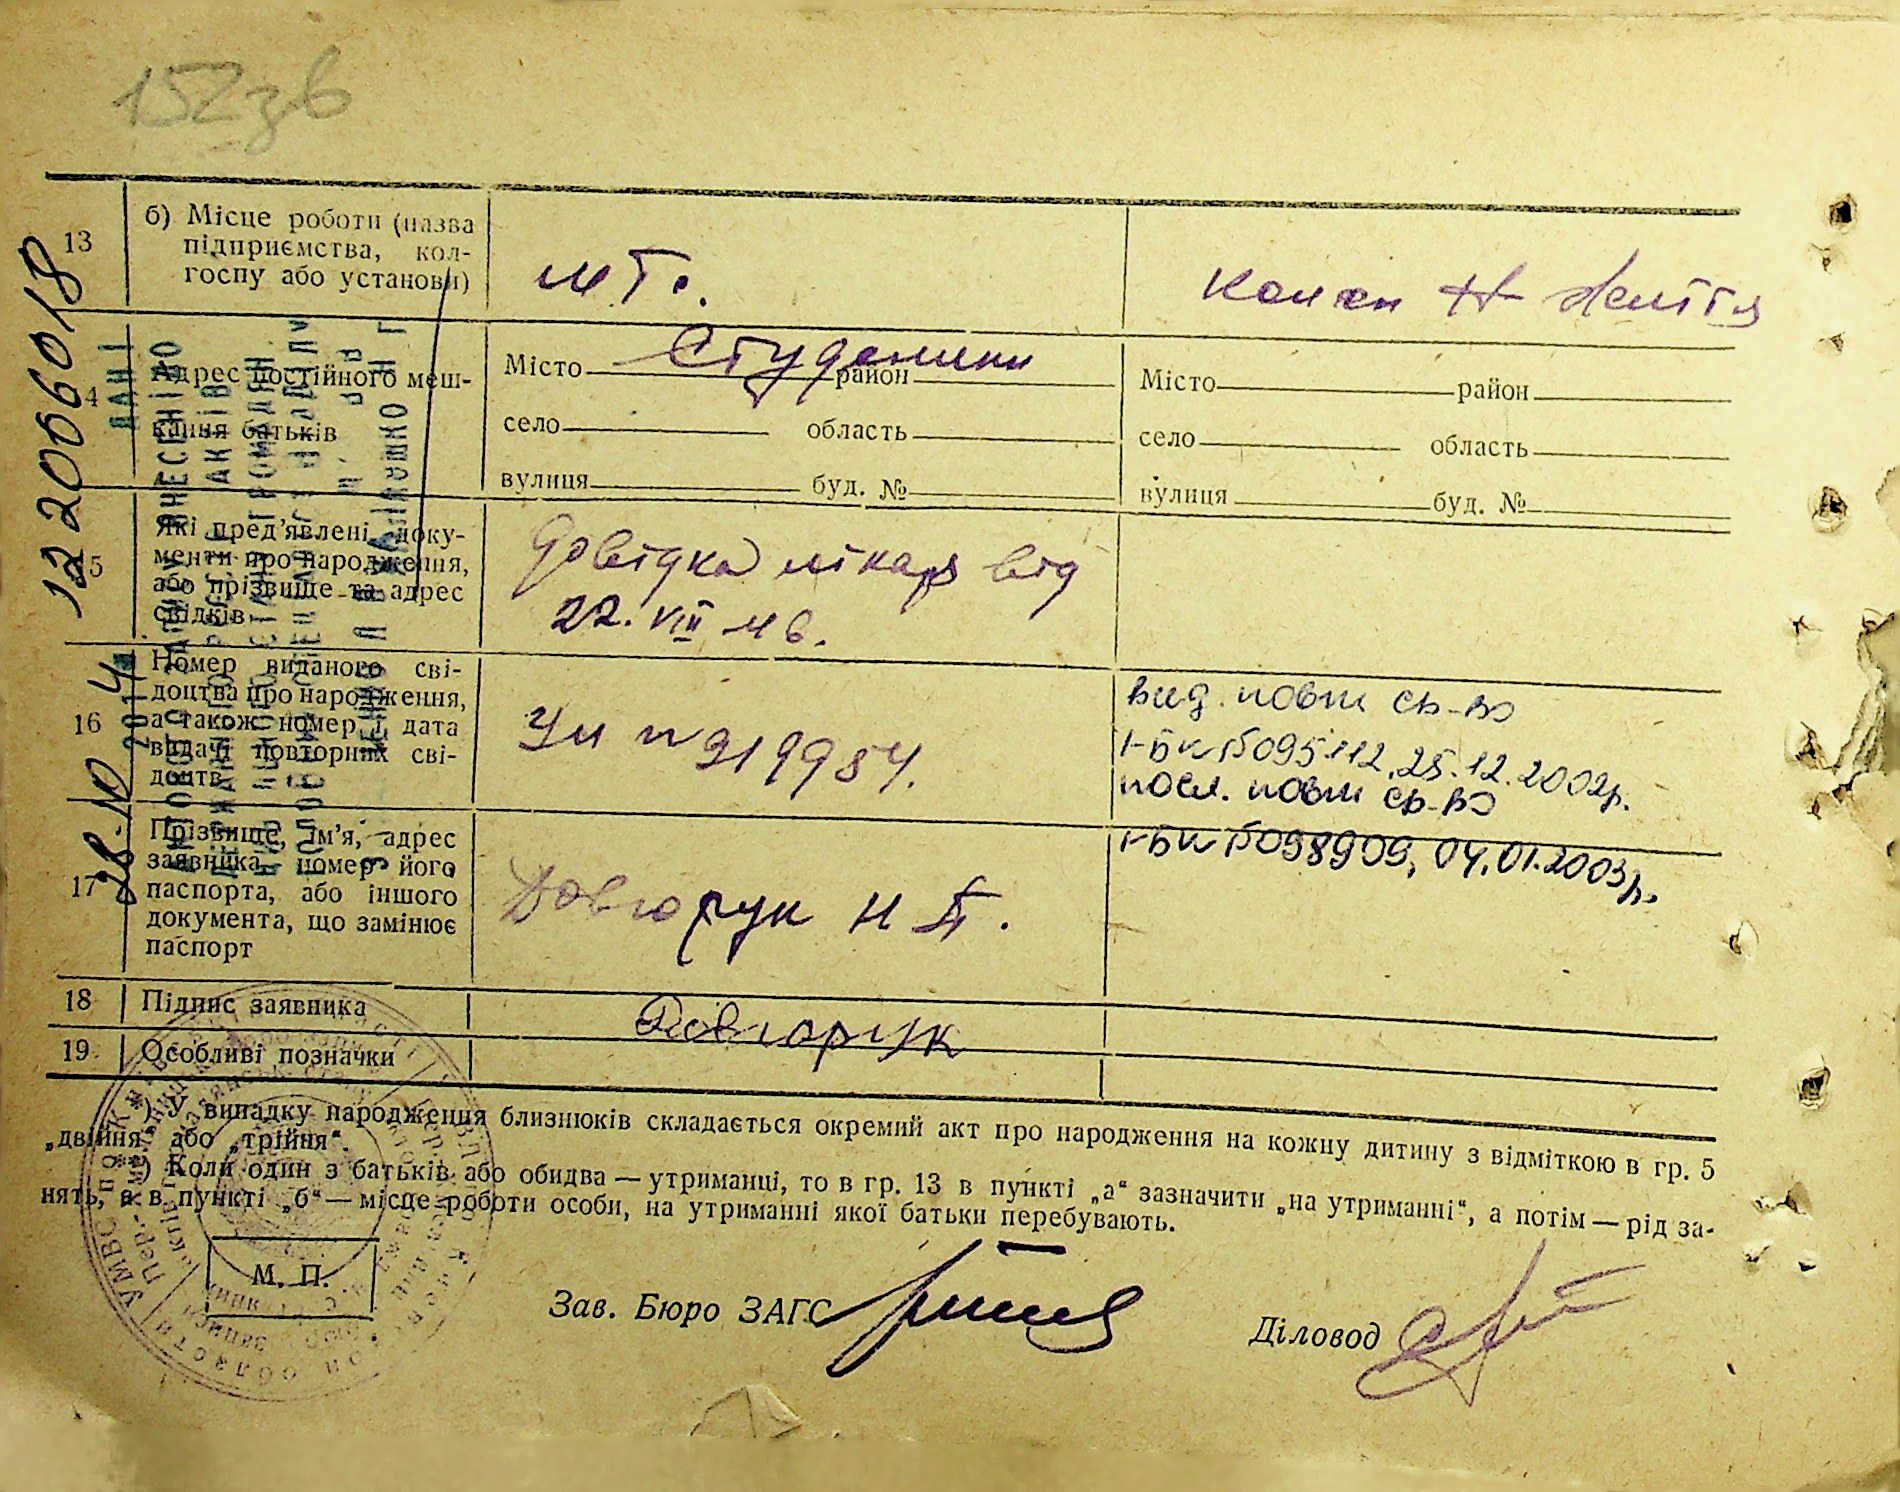 152зв
13
б) Місце роботи (назва
підприємства, кол-
госпу або установи)
МТС.
колгосп Н Життя
12206018
4
Адрес постійного меш-
кання батьків
Студеники
Місто район
село область
вулиця буд. №
Місто район
село область
вулиця буд. №
5
Які пред'явлені доку-
менти про народження,
або прізвище та адрес
свідків
Довідка лікаря від
22. VIII 46.
16
Номер виданого сві-
доцтва про народження,
а також номер і дата
видачі повторних сві-
доцтв
919984.
вид. повт св-во
І-БК №095112, 25.12.2002р.
посл. повт св-во
І-БК №098909, 04.01.2003р.
28.10 2014
17
Прізвище, ім'я, адрес
заявника, номер його
паспорта, або іншого
документа, що замінює
паспорт
Довгорук Н П.
18
Підпис заявника
Довгорук
19
Особливі позначки
*) У випадку народження близнюків складається окремий акт про народження на кожну дитину з відміткою в гр. 5
„двійня" або „трійня".
**) Коли один з батьків або обидва — утриманці, то в гр. 13 в пункті „а" зазначити „на утриманні", а потім — рід за-
нять, а в пункті „б" — місце роботи особи, на утриманні якої батьки перебувають.
М. П.
Зав. Бюро ЗАГС
Діловод